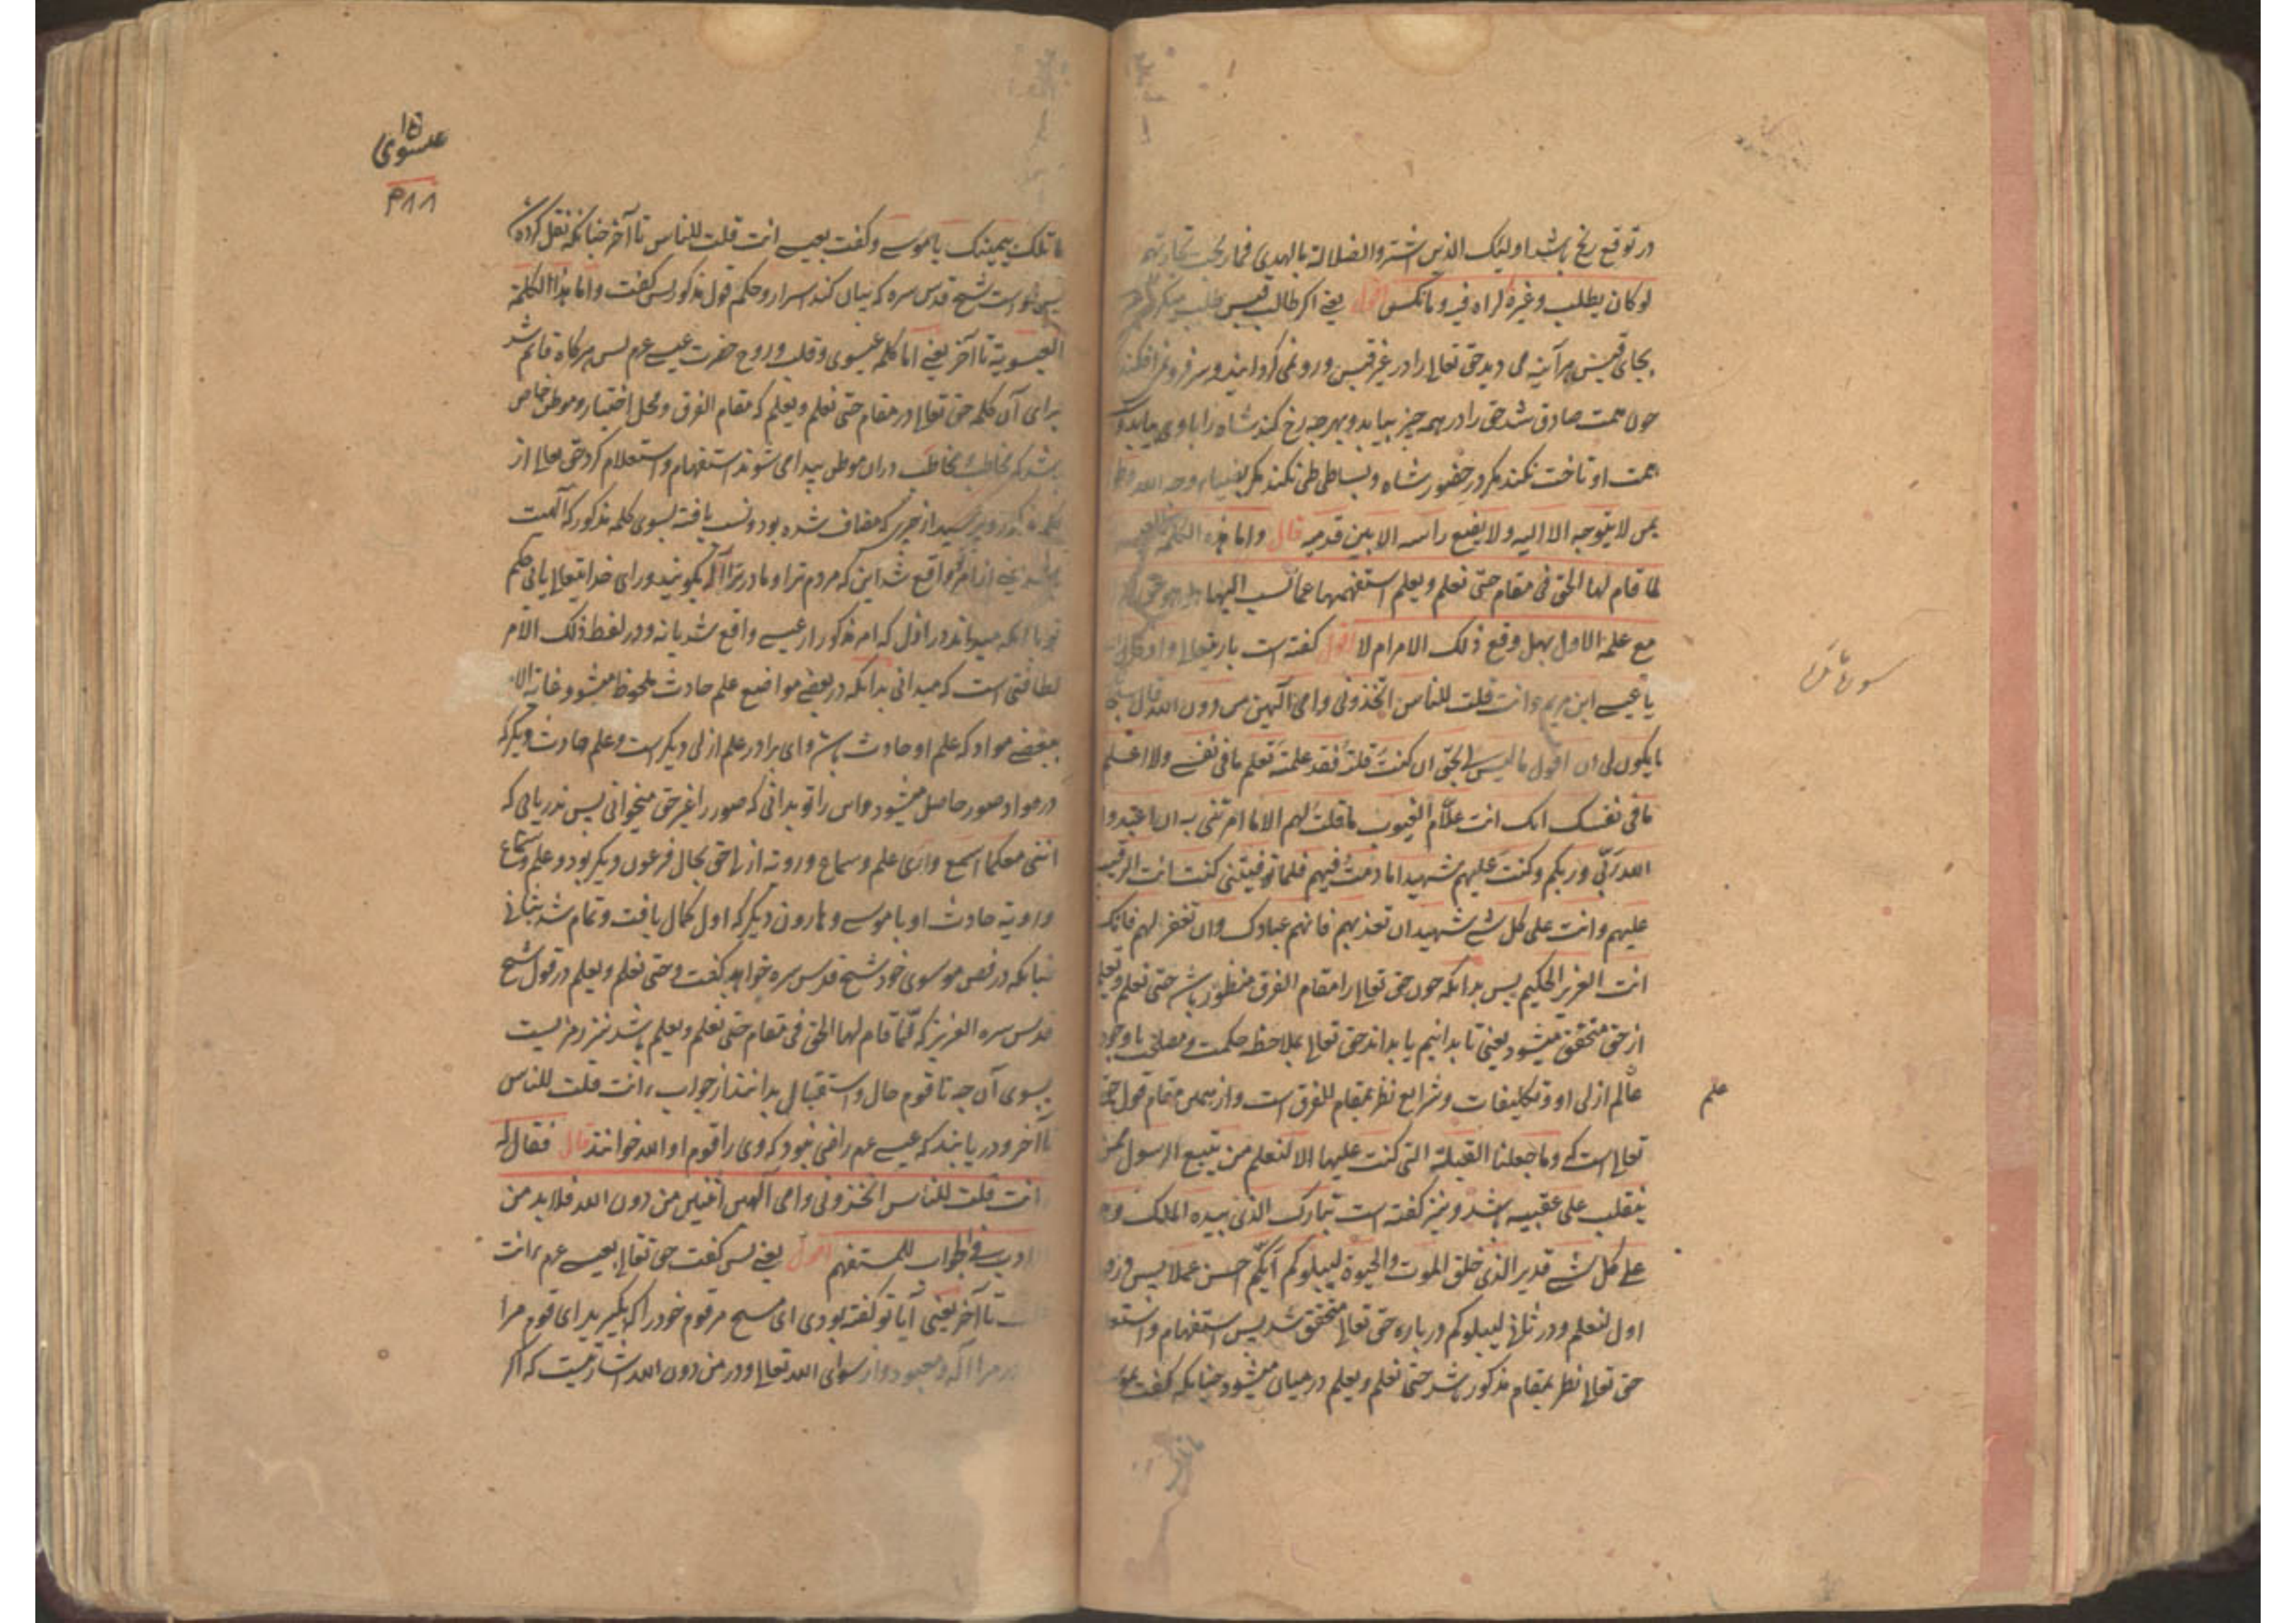 در توقع ربح باشد اولیک الذین اشتروا الضلالة بالهدی فما ربحت تجارتهم
لو کان یطلب وغیره لراه فیه وما نکس اقول یعنی اگر طالب قبس طلب میکرد
بجای قبس هر آینه می دید حق تعالی را در غیر قبس و رو نمی گردانید و سر فرو نمی افکند
چون همت صادق شد حق را در همه چیز بیابد و بهر چه رخ کند شاه را با وی بیابد و
همت او تاخت نکند مگر در حضور شاه و بساطی طی نکند مگر
بمن لا یتوجه الا الیه ولا یضع راسه الا بین قدمیه قال واما هذه الکلمة العیسویه
لما قام لها الحق فی مقام حتی نعلم ویعلم استفهمها عما نسب الیها هل هو حق ام لا
مع علمه الاول بهل وقع ذلک الامر ام لا اقول گفته است باریتعالی واذ قال الله
یا عیسی ابن مریم ءانت قلت للناس اتخذونی وامی الهین من دون الله قال سبحانک
ما یکون لی ان اقول ما لیس لی بحق ان کنت قلته فقد علمته تعلم ما فی نفسی ولا اعلم
ما فی نفسک انک انت علام الغیوب ما قلت لهم الا ما امرتنی به ان اعبدوا
الله ربی وربکم وکنت علیهم شهیدا ما دمت فیهم فلما توفیتنی کنت انت الرقیب
علیهم وانت علی کل شی شهید ان تعذبهم فانهم عبادک وان تغفر لهم فانک
انت العزیز الحکیم پس بدانکه چون حق تعالی را مقام الفرق منظور باشد حتی نعلم ویعلم
از حق متحقق میشود یعنی تا بدانیم یا بداند حق تعالی بملاحظه حکمت و مصلحتی با وجود
عالم ازلی او و تکلیفات و شرایع نظر بمقام للفرق است و از همین مقام قول حق
علم
تعالی است که وما جعلنا القبلة التی کنت علیها الا لنعلم من یتبع الرسول ممن
ینقلب علی عقبیه باشد و نیز گفته است تبارک الذی بیده الملک وهو
علی کل شی قدیر الذی خلق الموت والحیوة لیبلوکم ایکم احسن عملا پس در
اول لنعلم و در ثانی لیبلوکم درباره حق تعالی متحقق شد پس استفهام و استعلام
حق تعالی نظر بمقام مذکور باشد حتی نعلم ویعلم در میان میشود چنانکه گفت بموسی
۱۵
عیسوی
ما تلک بیمینک یا موسی و گفت بعیسی ءانت قلت للناس تا آخر چنانکه نقل کرده
پس خواست شیخ قدس سره که بیان کند اسرار و حکم قول مذکور پس گفت واما هذا الکلمة
العیسویة تا آخر یعنی اما کلمه عیسوی و قلب و روح حضرت عیسی عم پس هرگاه قائم شد
برای آن کلمه حق تعالی در مقام حتی نعلم ویعلم که مقام الفرق و محل اختبار و موطن خاص
باشد که مخاطِب و مخاطَب در ان موطن پیدا می شوند استفهام و استعلام کرد حق تعالی از
کلمه مذکور و پرسید از چیزی که مضاف شده بود و نسب یافته بسوی کلمه مذکور که آلهت
باشد یعنی از امر واقع شد این که مردم ترا و مادر ترا اله بگویند ورای خدایتعالی یا نی حکم
تو با آنکه میداند در اول که امر مذکور از عیسی واقع شد یا نه و در لفظ ذلک الامر
لطافتی است که میدانی بدانکه در بعضی مواضع علم حادث ملحوظ میشود غایة الامر
ببعضی مواد که علم او حادث باشد و ای برادر علم ازلی دیگر است و علم حادث دیگر که
در مواد صور حاصل میشود و این را تو بدانی که صور را غیر حق میخوانی پس ندریابی که
اننی معکما اسمع واری علم و سماع و رویه ازلا حق بحال فرعون دیگر بود و علم و سماع
و رویه حادث او با موسی و هارون دیگر که اول کمال یافت و تمام شد بثانی
چنانکه در فص موسوی خود شیخ قدس سره خواهد گفت و حتی نعلم ویعلم در قول شیخ
قدس سره العزیز که لما قام لها الحق فی مقام حتی نعلم ویعلم باشد نیز رمزیست
بسوی آن چه تا قوم حال و استقبال بدانند از جواب ءانت قلت للناس
تا آخر و دریابند که عیسی عم راضی نبود که وی را قوم او الله خوانند قال فقال له
ءانت قلت للناس اتخذونی وامی الهین اثنین من دون الله فلا بد من
الادب فی الجواب للمستفهم اقول یعنی پس گفت حق تعالی بعیسی عم ءانت
قلت تا آخر یعنی آیا تو گفته بودی ای مسیح مر قوم خود را که بگیرید ای قوم مرا
و مادر مرا اله و معبود و از سوای الله تعالی و در من دون الله اشارتیست که اگر